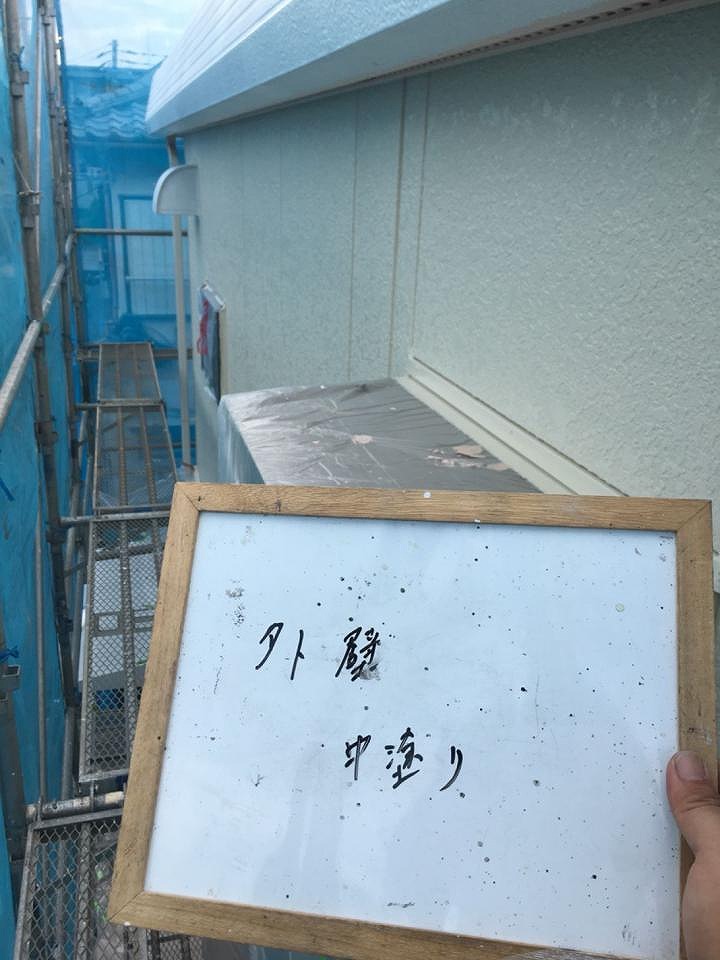 外壁
中塗り